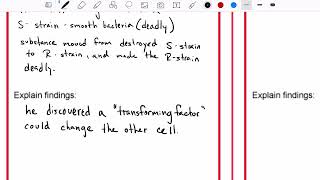 S- strain - smooth bacteria (deadly)
substance moved from destroyed S-strain
to R-strain, and made the R-strain
deadly.
Explain findings:
he discovered a "transforming factor"
could change the other cell.
Explain findings: